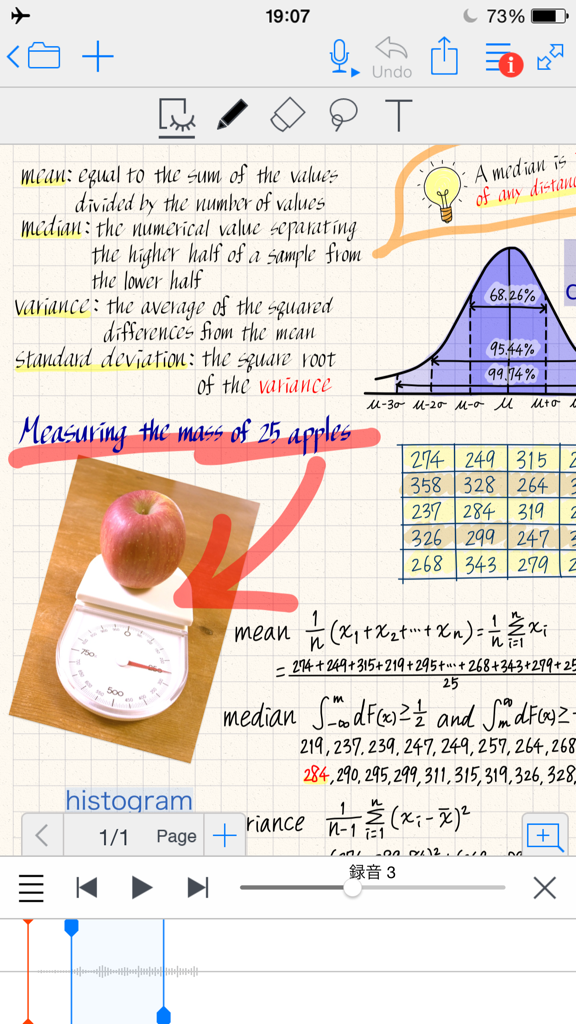 19:07
73%
Undo
i
T
mean: equal to the sum of the values
divided by the number of values
median: the numerical value separating
the higher half of a sample from
the lower half
variance: the average of the squared
differences from the mean
standard deviation: the square root
of the variance
A median is
of any distan
68.26%
95.44%
99.74%
μ-3σ μ-2σ μ-σ μ μ+σ
Measuring the mass of 25 apples
274 249 315
358 328 264
237 284 319
326 299 247
268 343 279
0
750
500
mean 1/n (x₁+x₂+···+xₙ)=1/n Σⁿᵢ₌₁ xᵢ
= 274+249+315+219+295+···+268+343+279+25
25
median ∫₋∞ᵐ dF(x)≥1/2 and ∫ₘ^∞ dF(x)≥
219, 237, 239, 247, 249, 257, 264, 268
284, 290, 295, 299, 311, 315, 319, 326, 328,
histogram
riance 1/(n-1) Σⁿᵢ₌₁ (xᵢ-x̄)²
1/1 Page
録音 3